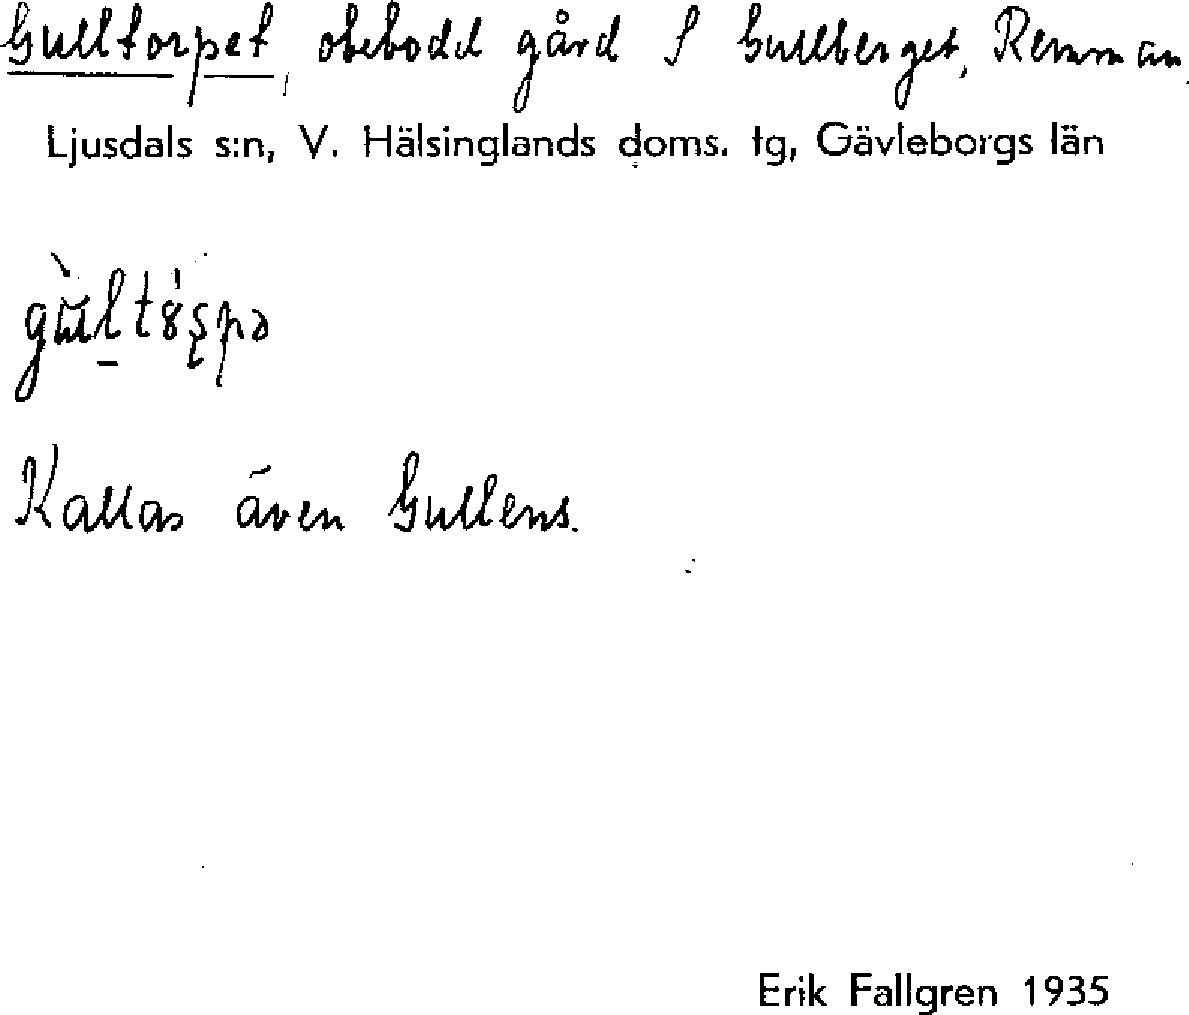 Gulltorpet, obebodd gård S Gullberget, Remman.
Ljusdals s:n, V. Hälsinglands doms. tg, Gävleborgs län
Kallas även Gullens.
Erik Fallgren 1935